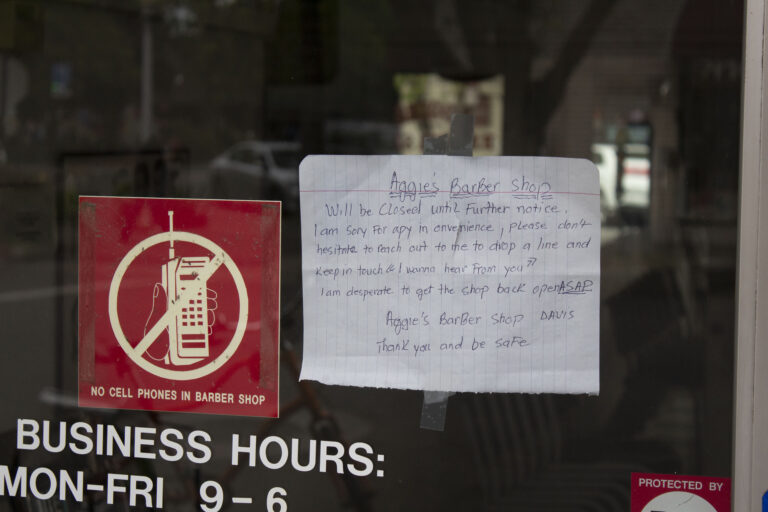 Aggie's Barber shop
Will be Closed until Further notice.
I am Sory For apy in onvenience, please don't
hesitate to reach out to me to drop a line and
Keep in touch "I wanna hear From you"
I am desperate to get the shop back open ASAP
Aggie's BarBer Shop DAVIS
Thank you and be safe
NO CELL PHONES IN BARBER SHOP
BUSINESS HOURS:
MON-FRI 9-6
PROTECTED BY